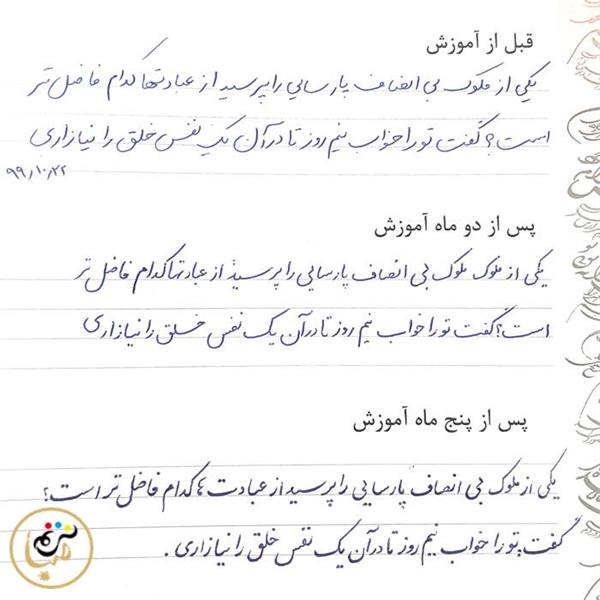 قبل از آموزش
یکی از ملوک بی انصاف پارسایی را پرسید از عبادتها کدام فاضل تر
است؟ گفت تو را خواب نیم روز تا در آن یک نفس خلق را نیازاری
۹۹/۱۰/۲۲
پس از دو ماه آموزش
یکی از ملوک ملوک بی انصاف پارسایی را پرسید از عبادتها کدام فاضل تر
است؟ گفت تو را خواب نیم روز تا در آن یک نفس خلق را نیازاری
پس از پنج ماه آموزش
یکی از ملوک بی انصاف پارسایی را پرسید از عبادت ها کدام فاضل تر است؟
گفت: تو را خواب نیم روز تا در آن یک نفس خلق را نیازاری.